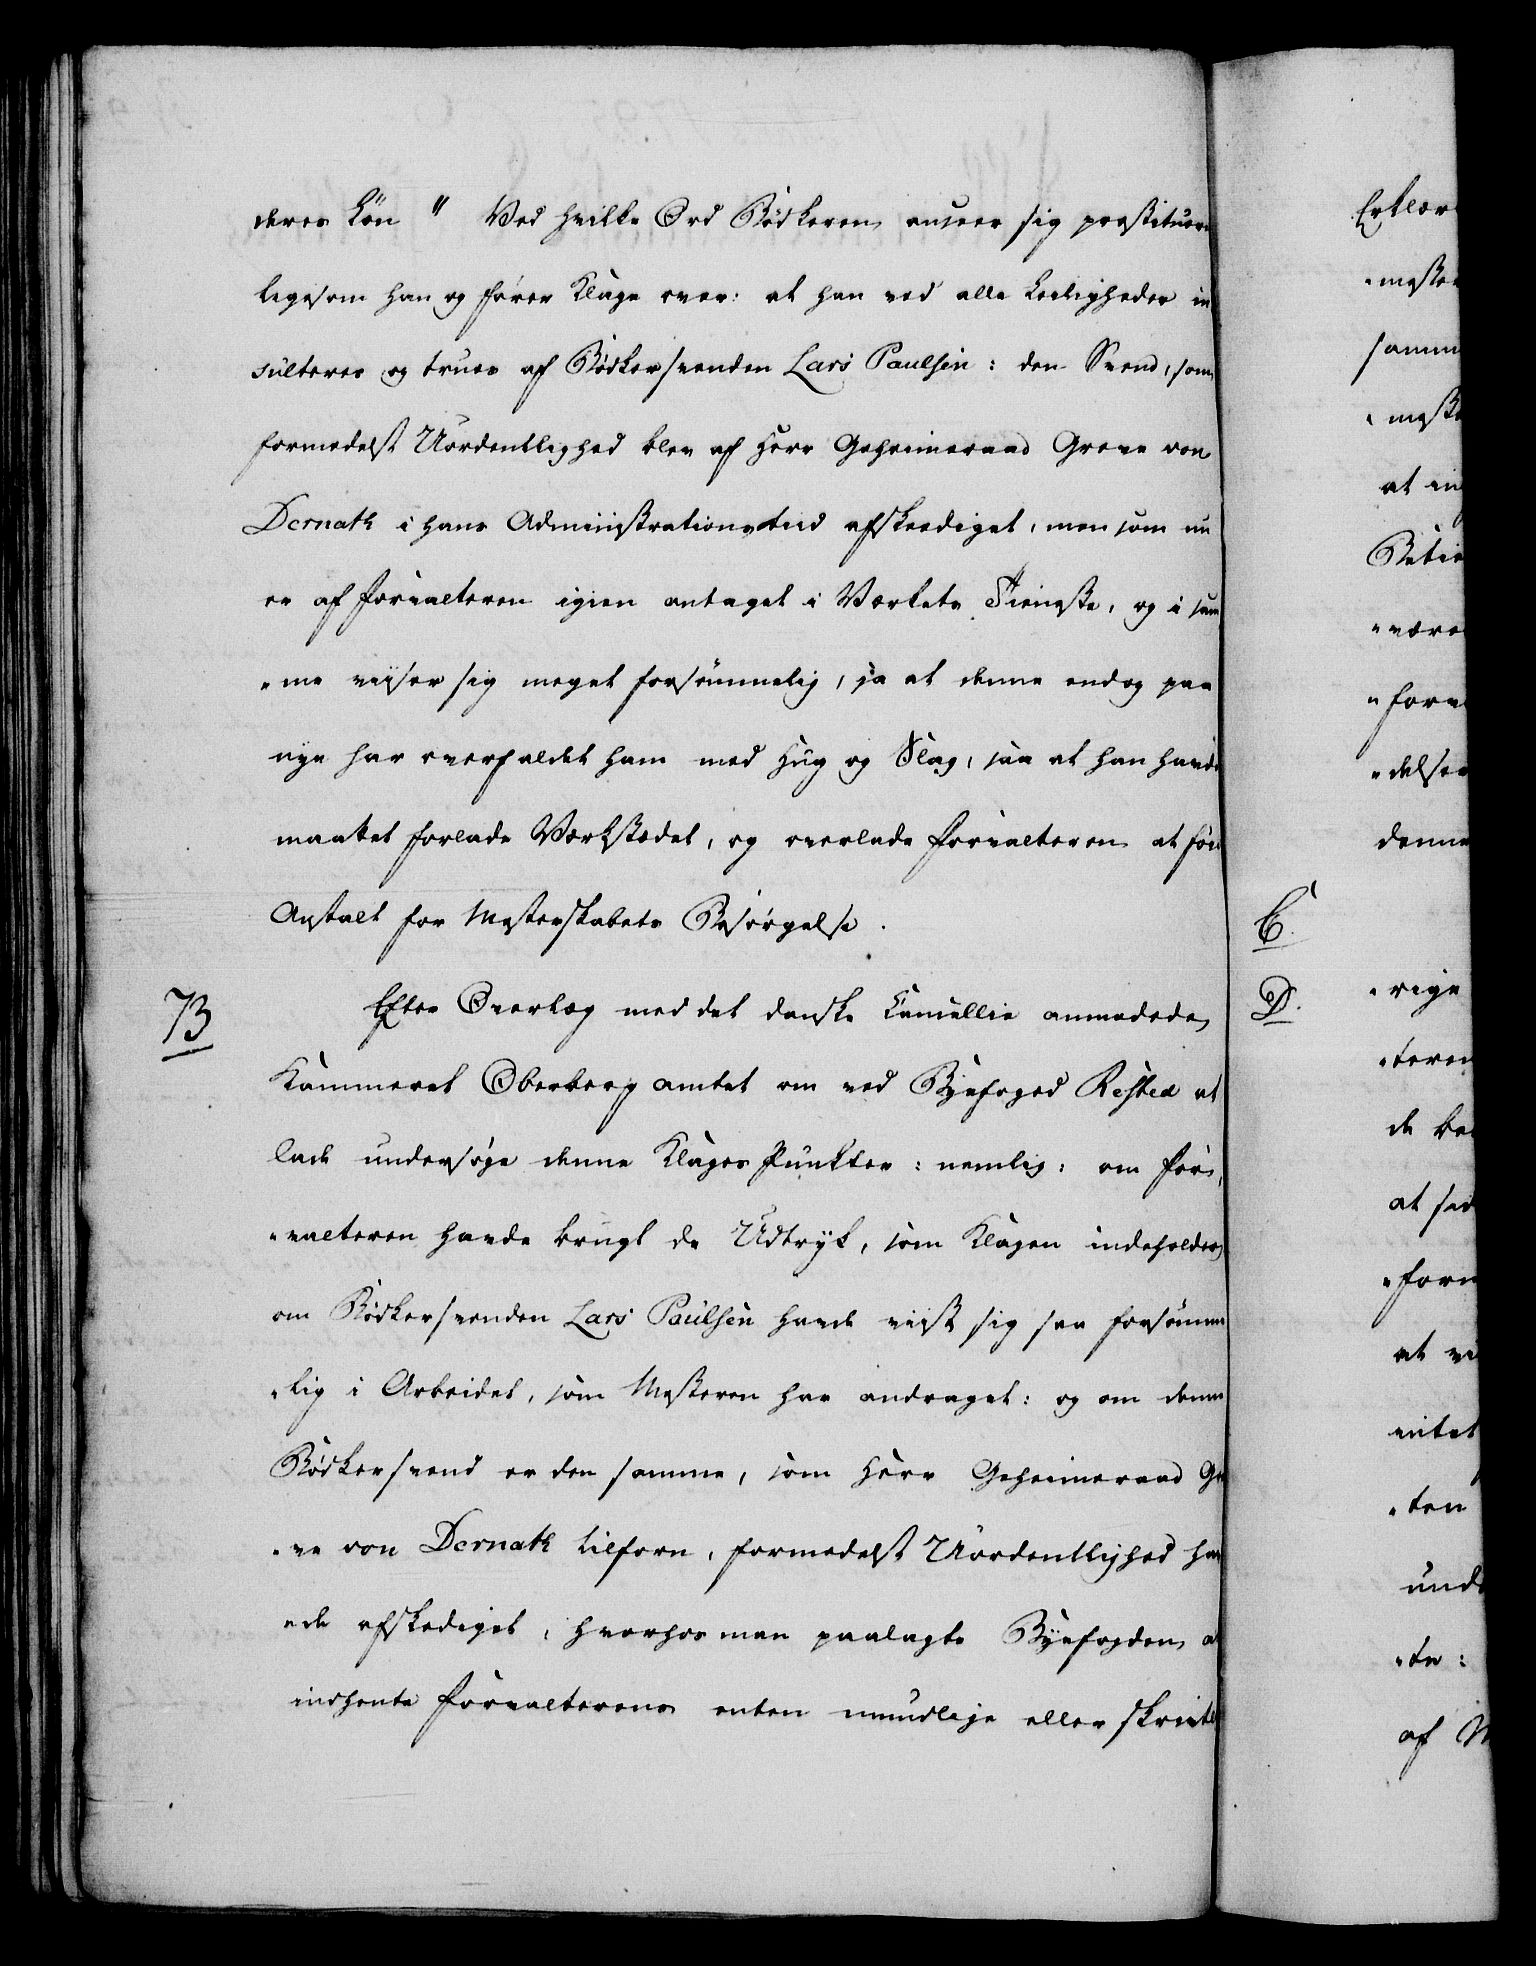 deres Løn " Ved hvilke Ord Bødkeren anseer sig prostitueret
ligesom han og fører Klage over: at han ved alle Leiligheder in
sulteres og trues af Bødkersvenden Lars Paulsen: den Svend, som
formedelst Uordentlighed blev af Herr Geheimeraad Greve von
Dernath i hans Administrationstid afskeediget, men som nu
er af Forvalteren igien antaget i Værkets Tieneste, og i sam
"me viiser sig meget forsømmelig, ja at denne endog paa
nye har overfaldet ham med Hug og Slag, saa at han havde
maattet forlade Værkstedet, og overlade Forvalteren at føie
Anstalt for Mesterskabets Besørgelse.
B
Efter Overlæg med det danske Cancellie anmodede
Kammeret Oberbergamtet om ved Byefoged Rested at
lade undersøge denne Klages Punkter: nemlig: om For
"valteren havde brugt de Udtryk, som Klagen indeholder,
om Bødkersvenden Lars Paulsen havde viist sig saa forsømme
"lig i Arbeidet, som Mesteren har andraget: og om denne
Bødkersvend er den samme, som Herr Geheimeraad Gre
"ve von Dernath tilforn, formedelst Uordentlighed hav
"de afskediget, hvorhos man paalagte Byefogden at
indhente Forvalterens enten mundlige eller skriftl
Erklær
"meste
samm
"meste
at in
"være
"forv
"delse
denne
C.
D.
"rige
"teren
de be
at
"form
at
"ten
unde
"te:
af M